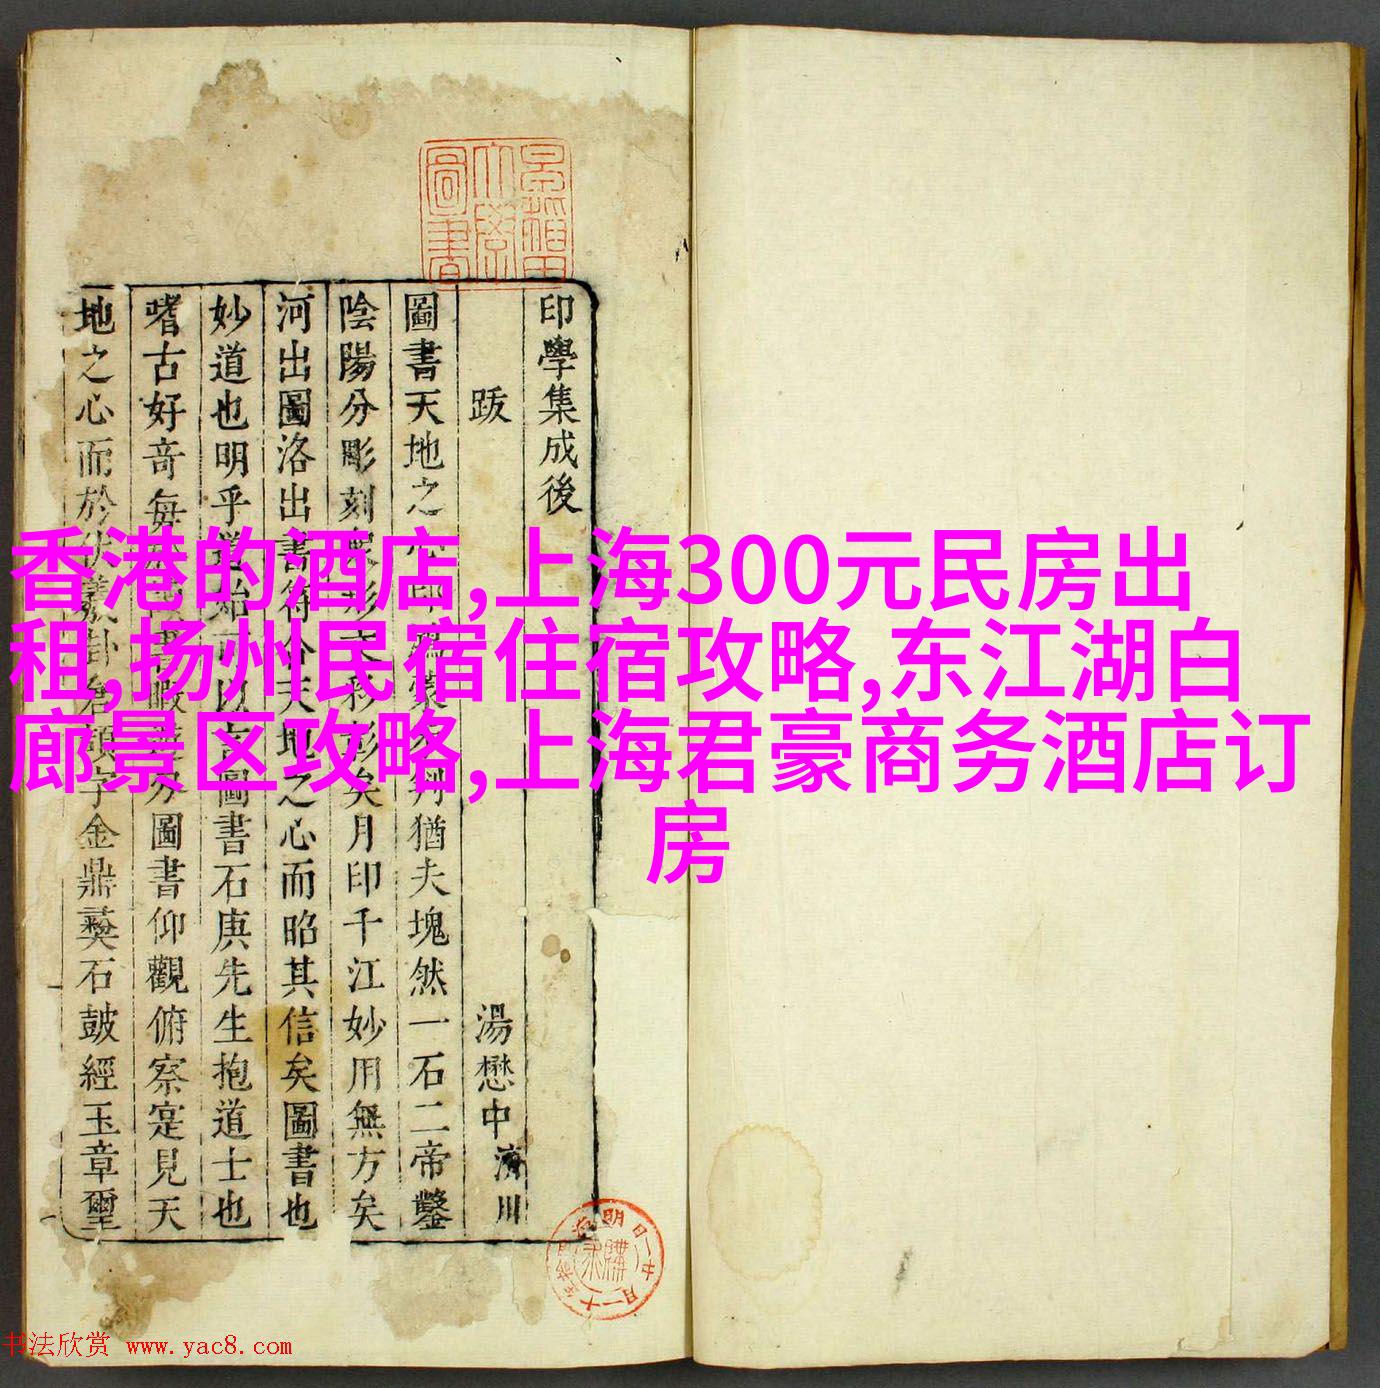 香港的酒店,上海300元民房出
租,扬州民宿住宿攻略,东江湖白
廊景区攻略,上海君豪商务酒店订
房
印學集成後
跋
湯懋中 濟川
圖書天地之心印篆刻猶夫塊然一石二帝鑿
陰陽分彫刻衆形文彩彭矣月印千江妙用無方矣
河出圖洛出書符合天地之心而昭其信矣圖書也
妙道也明乎道始可以言圖書石庚先生抱道士也
嗜古好竒每暇分圖書仰觀俯察寔見天
地之心而於伏羲卦倉頡字金鼎彝石鼓經玉章璽
書法欣赏 www.yac8.com